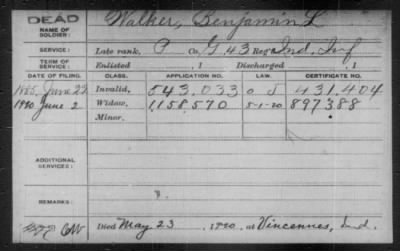 DEAD
NAME OF SOLDIER: Walker, Benjamin L
SERVICE: Late rank, P Co. G, 43 Reg't Ind. Inf
TERM OF SERVICE: Enlisted , 1 Discharged , 1
DATE OF FILING. CLASS. APPLICATION NO. LAW. CERTIFICATE NO.
1885, June 23 Invalid, 543,033 431,404
1920 June 2 Widow, 1,158,570 5-1-20 897388
Minor,
ADDITIONAL SERVICES:
REMARKS:
Died May 23 , 1920, at Vincennes, Ind.